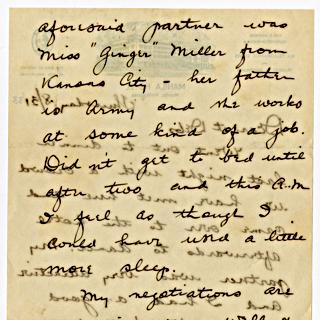 aforesaid partner was
Miss "Ginger" Miller from
Kansas City - her father
is Army and she works
at some kind of a job.
Did n't get to bed until
after two and this A.M
I feel as though I
coned have used a little
more sleep.
My negotiations are